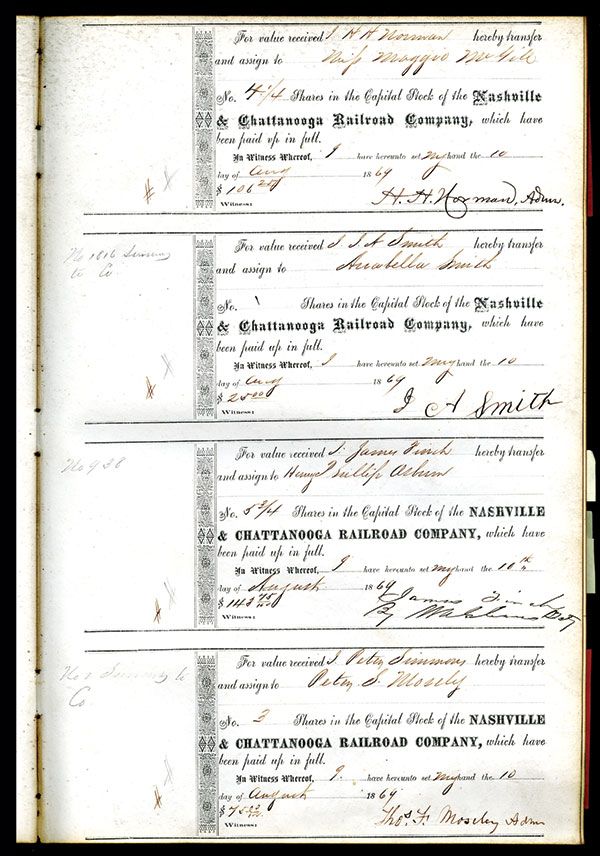 For value received I H H Norman hereby transfer
and assign to Miss Maggie McGill
No. 4 1/4 Shares in the Capital Stock of the Nashville
& Chattanooga Railroad Company, which have
been paid up in full.
In Witness Whereof, I have hereunto set my hand the 10
day of Aug 1869
$ 106 25
Witness: H. H. Norman, Admr.
No 1016
to Co
For value received I J A Smith hereby transfer
and assign to Anabella Smith
No. 1 Shares in the Capital Stock of the Nashville
& Chattanooga Railroad Company, which have
been paid up in full.
In Witness Whereof, I have hereunto set my hand the 10
day of Aug 1869
$ 25 00
Witness: J A Smith
No 938
For value received I James Finch hereby transfer
and assign to Henry
No. 5 3/4 Shares in the Capital Stock of the NASHVILLE
& CHATTANOOGA RAILROAD COMPANY, which have
been paid up in full.
In Witness Whereof, I have hereunto set my hand the 10th
day of August 1869
$ 143 75/100 James Finch
Witness: By
to
Co
For value received I Peter Simmons hereby transfer
and assign to Peter S. Mosely
No. 3 Shares in the Capital Stock of the NASHVILLE
& CHATTANOOGA RAILROAD COMPANY, which have
been paid up in full.
In Witness Whereof, I have hereunto set my hand the 10
day of August 1869
$ 75
Witness: Thos. F. Moseley Admr